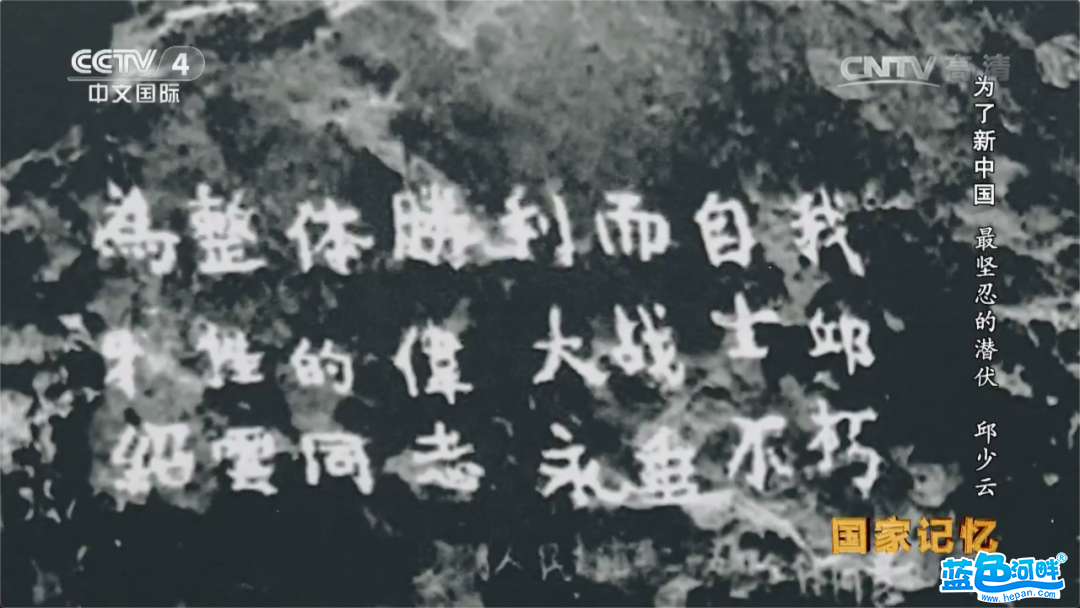 CCTV 4
中文国际
CNTV 高清
为了新中国 最坚忍的潜伏 邱少云
為整体勝利而自我
牺牲的偉大战士邱
紹雲同志永垂不朽
国家记忆
蓝色河畔®
www.hepan.com